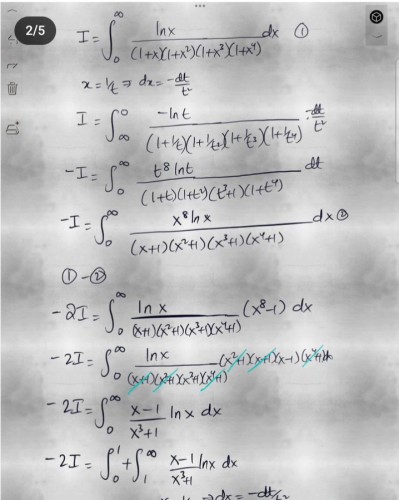 2/5
I = ∫₀^∞ lnx / (1+x)(1+x²)(1+x³)(1+x⁴) dx ①
x = 1/t ⇒ dx = -dt/t²
I = ∫_∞^0 -lnt / (1+1/t)(1+1/t²)(1+1/t³)(1+1/t⁴) · -dt/t²
-I = ∫₀^∞ t⁸ lnt / (1+t)(1+t²)(t³+1)(1+t⁴) dt
-I = ∫₀^∞ x⁸ ln x / (x+1)(x²+1)(x³+1)(x⁴+1) dx ②
① - ②
-2I = ∫₀^∞ ln x / (x+1)(x²+1)(x³+1)(x⁴+1) (x⁸-1) dx
-2I = ∫₀^∞ ln x / (x+1)(x²+1)(x³+1)(x⁴+1) (x²+1)(x+1)(x-1)(x⁴+1) dx
-2I = ∫₀^∞ x-1 / x³+1 ln x dx
-2I = ∫₀^1 + ∫₁^∞ x-1 / x³+1 lnx dx
⇒ dx = -dt/t²